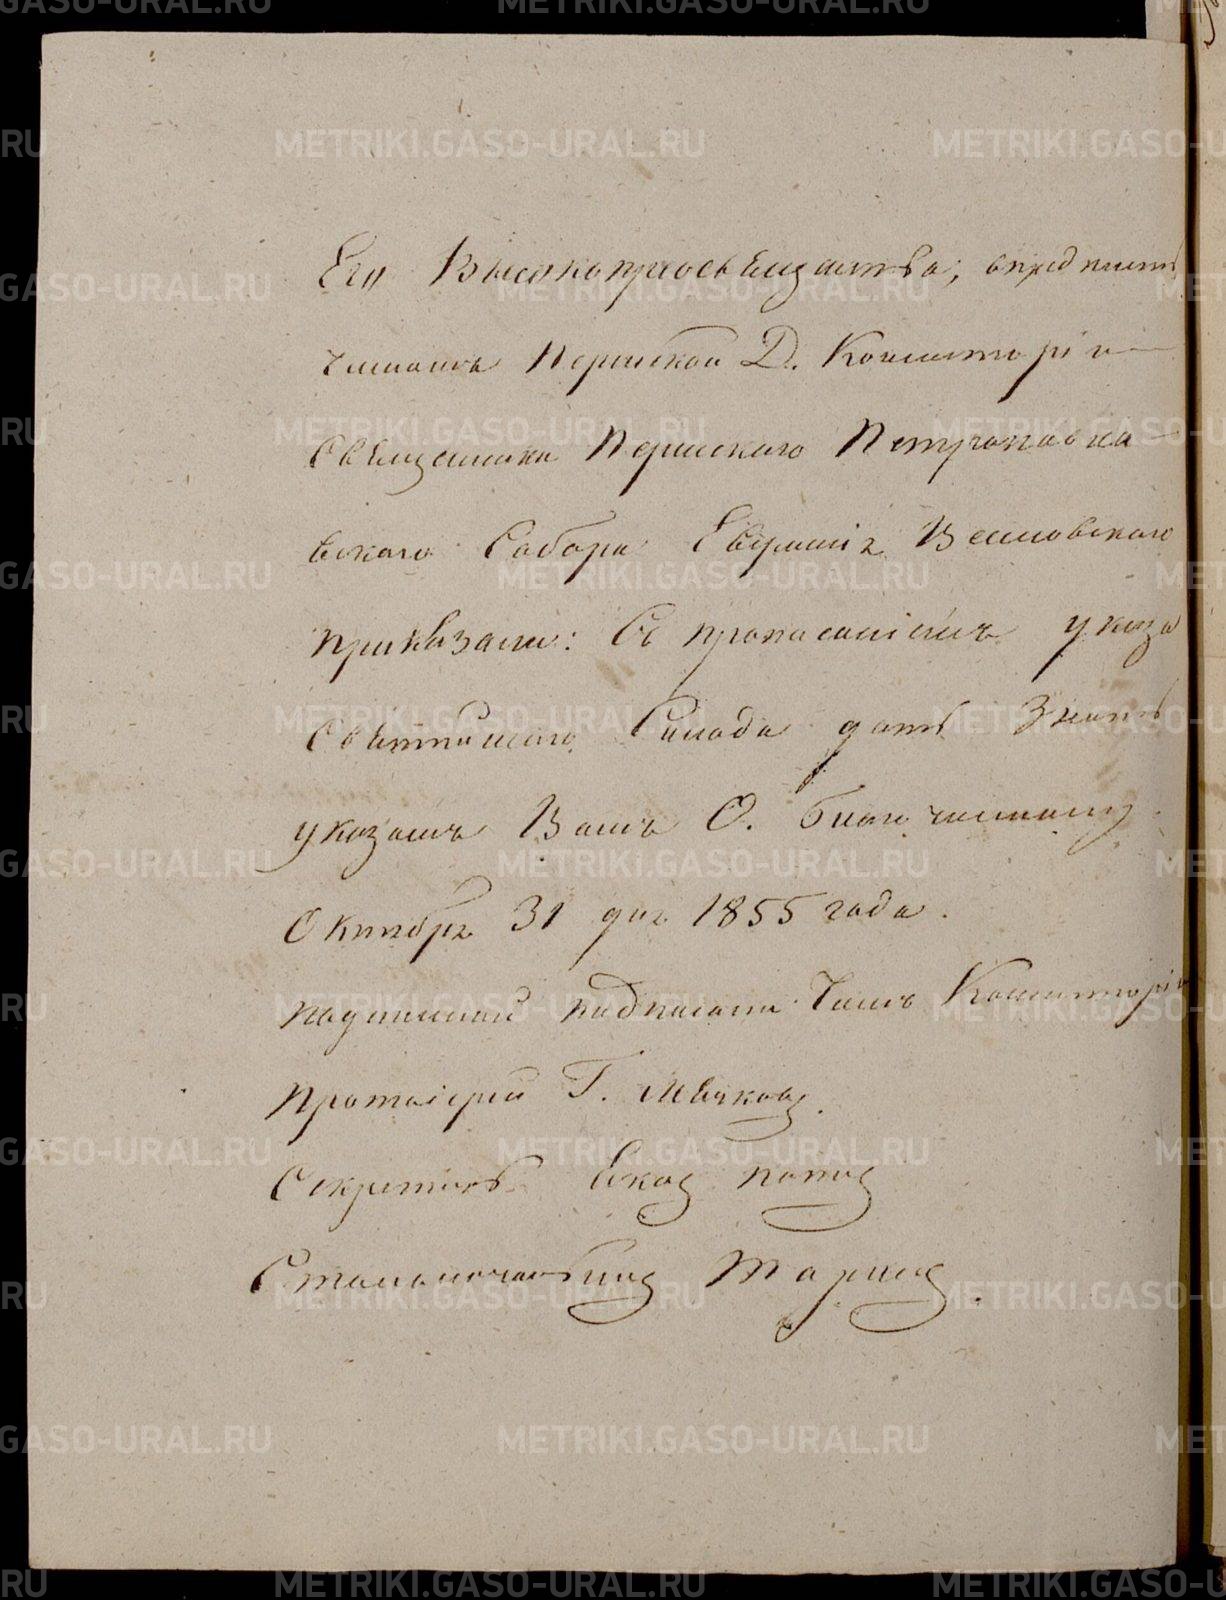 Его Высокопреосвященства, определить
членомъ Пермской Д. Консисторіи
Священника Пермскаго Петропавло-
вскаго Собора Евгенія
приказали: Съ прописаніемъ указа
Святѣйшаго Синода дать знать
указомъ Вамъ О. благочинному
Октября 31 дня 1855 года.
подлинной подписали Членъ Консисторіи
Протоіерей Г.
Секретарь Поповъ
Столоначальникъ
METRIKI.GASO-URAL.RU